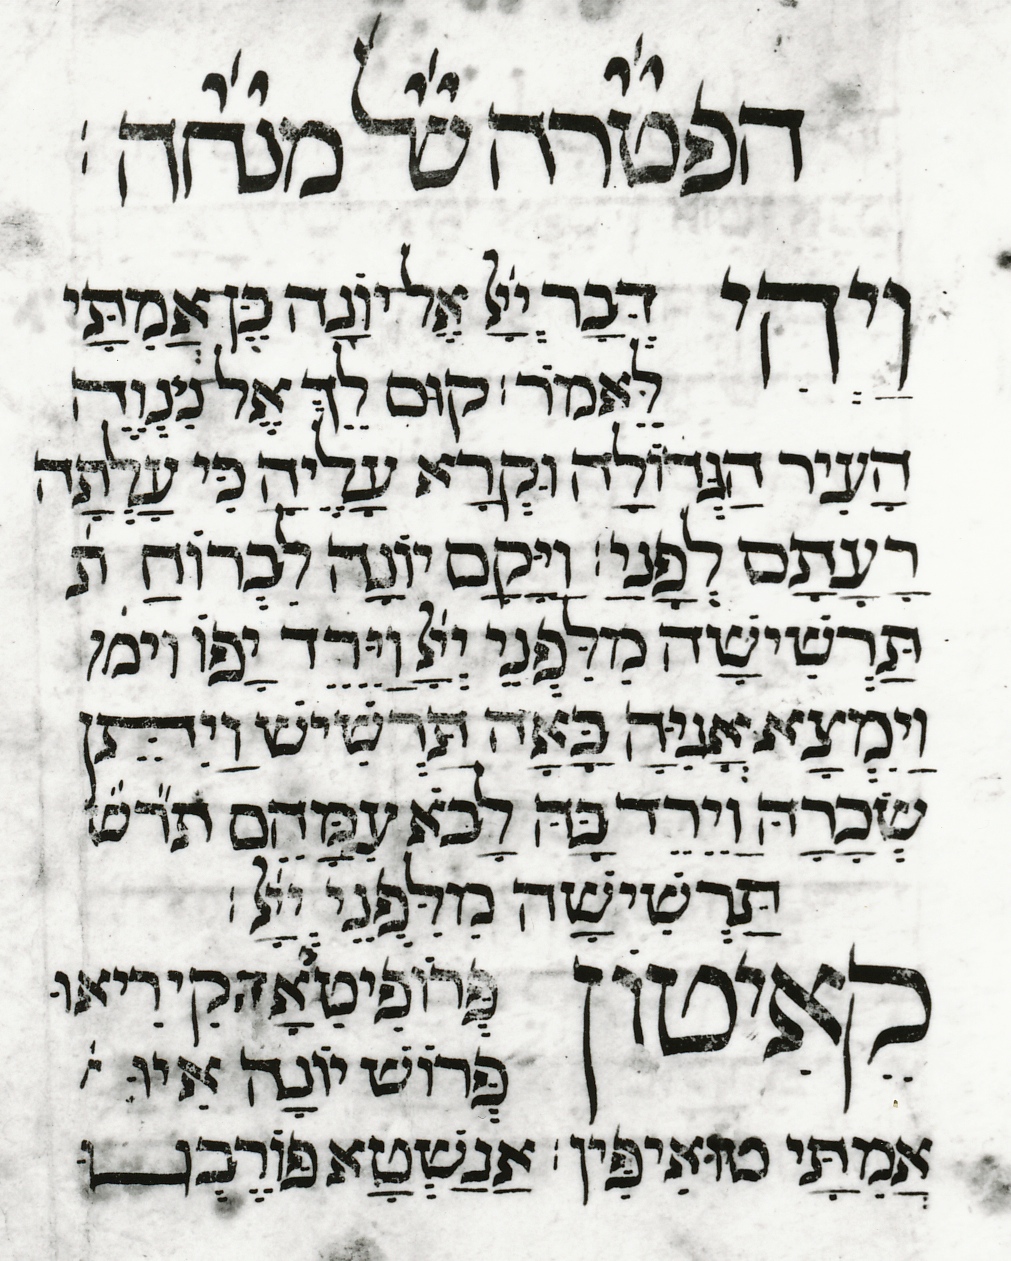 הפטרה של מנחה:
וַיְהִי דְּבַר יְיָ אֶל יוֹנָה בֶּן אֲמִתַּי
לֵאמֹר: קוּם לֵךְ אֶל נִנְוֵה
הָעִיר הַגְּדוֹלָה וּקְרָא עָלֶיהָ כִּי עָלְתָה
רָעָתָם לְפָנַי: וַיָּקָם יוֹנָה לִבְרוֹחַ ת
תַּרְשִׁישָׁה מִלִּפְנֵי יְיָ וַיֵּרֶד יָפוֹ וימ
וַיִּמְצָא אֳנִיָּה בָּאָה תַרְשִׁישׁ וַיִּתֵּן
שְׂכָרָהּ וַיֵּרֶד בָּהּ לָבֹא עִמָּהֶם תרש
תַּרְשִׁישָׁה מִלִּפְנֵי יְיָ:
קָאִיטוֹן פְּרוֹפִיטִאָה קִירִיאוּ
פְּרוֹשׁ יוֹנָה אִיוּ
אֲמִתַּי טוּאִיפִּין: אַנַשְׁטָא פּוֹרֶבְגוּ